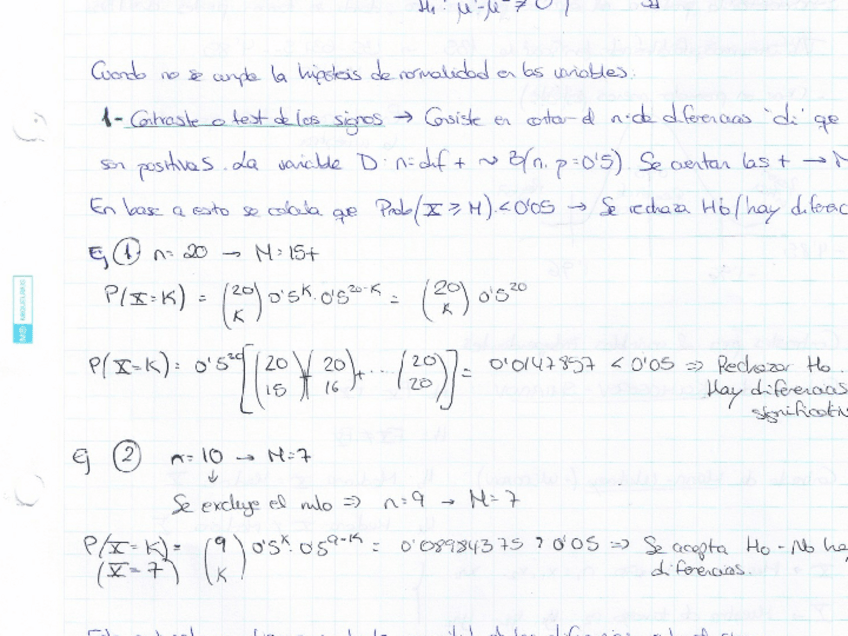 H₁: μ-μ ≠ 0
Cuando no se cumple la hipótesis de normalidad en las variables:
1- Contraste o test de los signos → Consiste en contar el nº de diferencias "di" que
son positivas. La variable D: n=dif + ~ B(n, p=0'5). Se cuentan las + → M
En base a esto se calcula que Prob(X ≥ M) < 0'05 → Se rechaza Ho (hay diferenc
Ej ① n= 20 → M=15+
P(X=K) = (20 K) 0'5^K · 0'5^20-K = (20 K) 0'5^20
P(X=K) = 0'5^20 [(20 15)+(20 16)+...(20 20)] = 0'0147857 < 0'05 ⇒ Rechazar Ho.
Hay diferencias
significativ
Ej ② n= 10 → M=7
↓
Se excluye el nulo ⇒ n=9 → M=7
P(X=K) = (9 K) 0'5^K · 0'5^9-K = 0'08984375 > 0'05 ⇒ Se acepta Ho - No ha
(X=7)
diferencias.